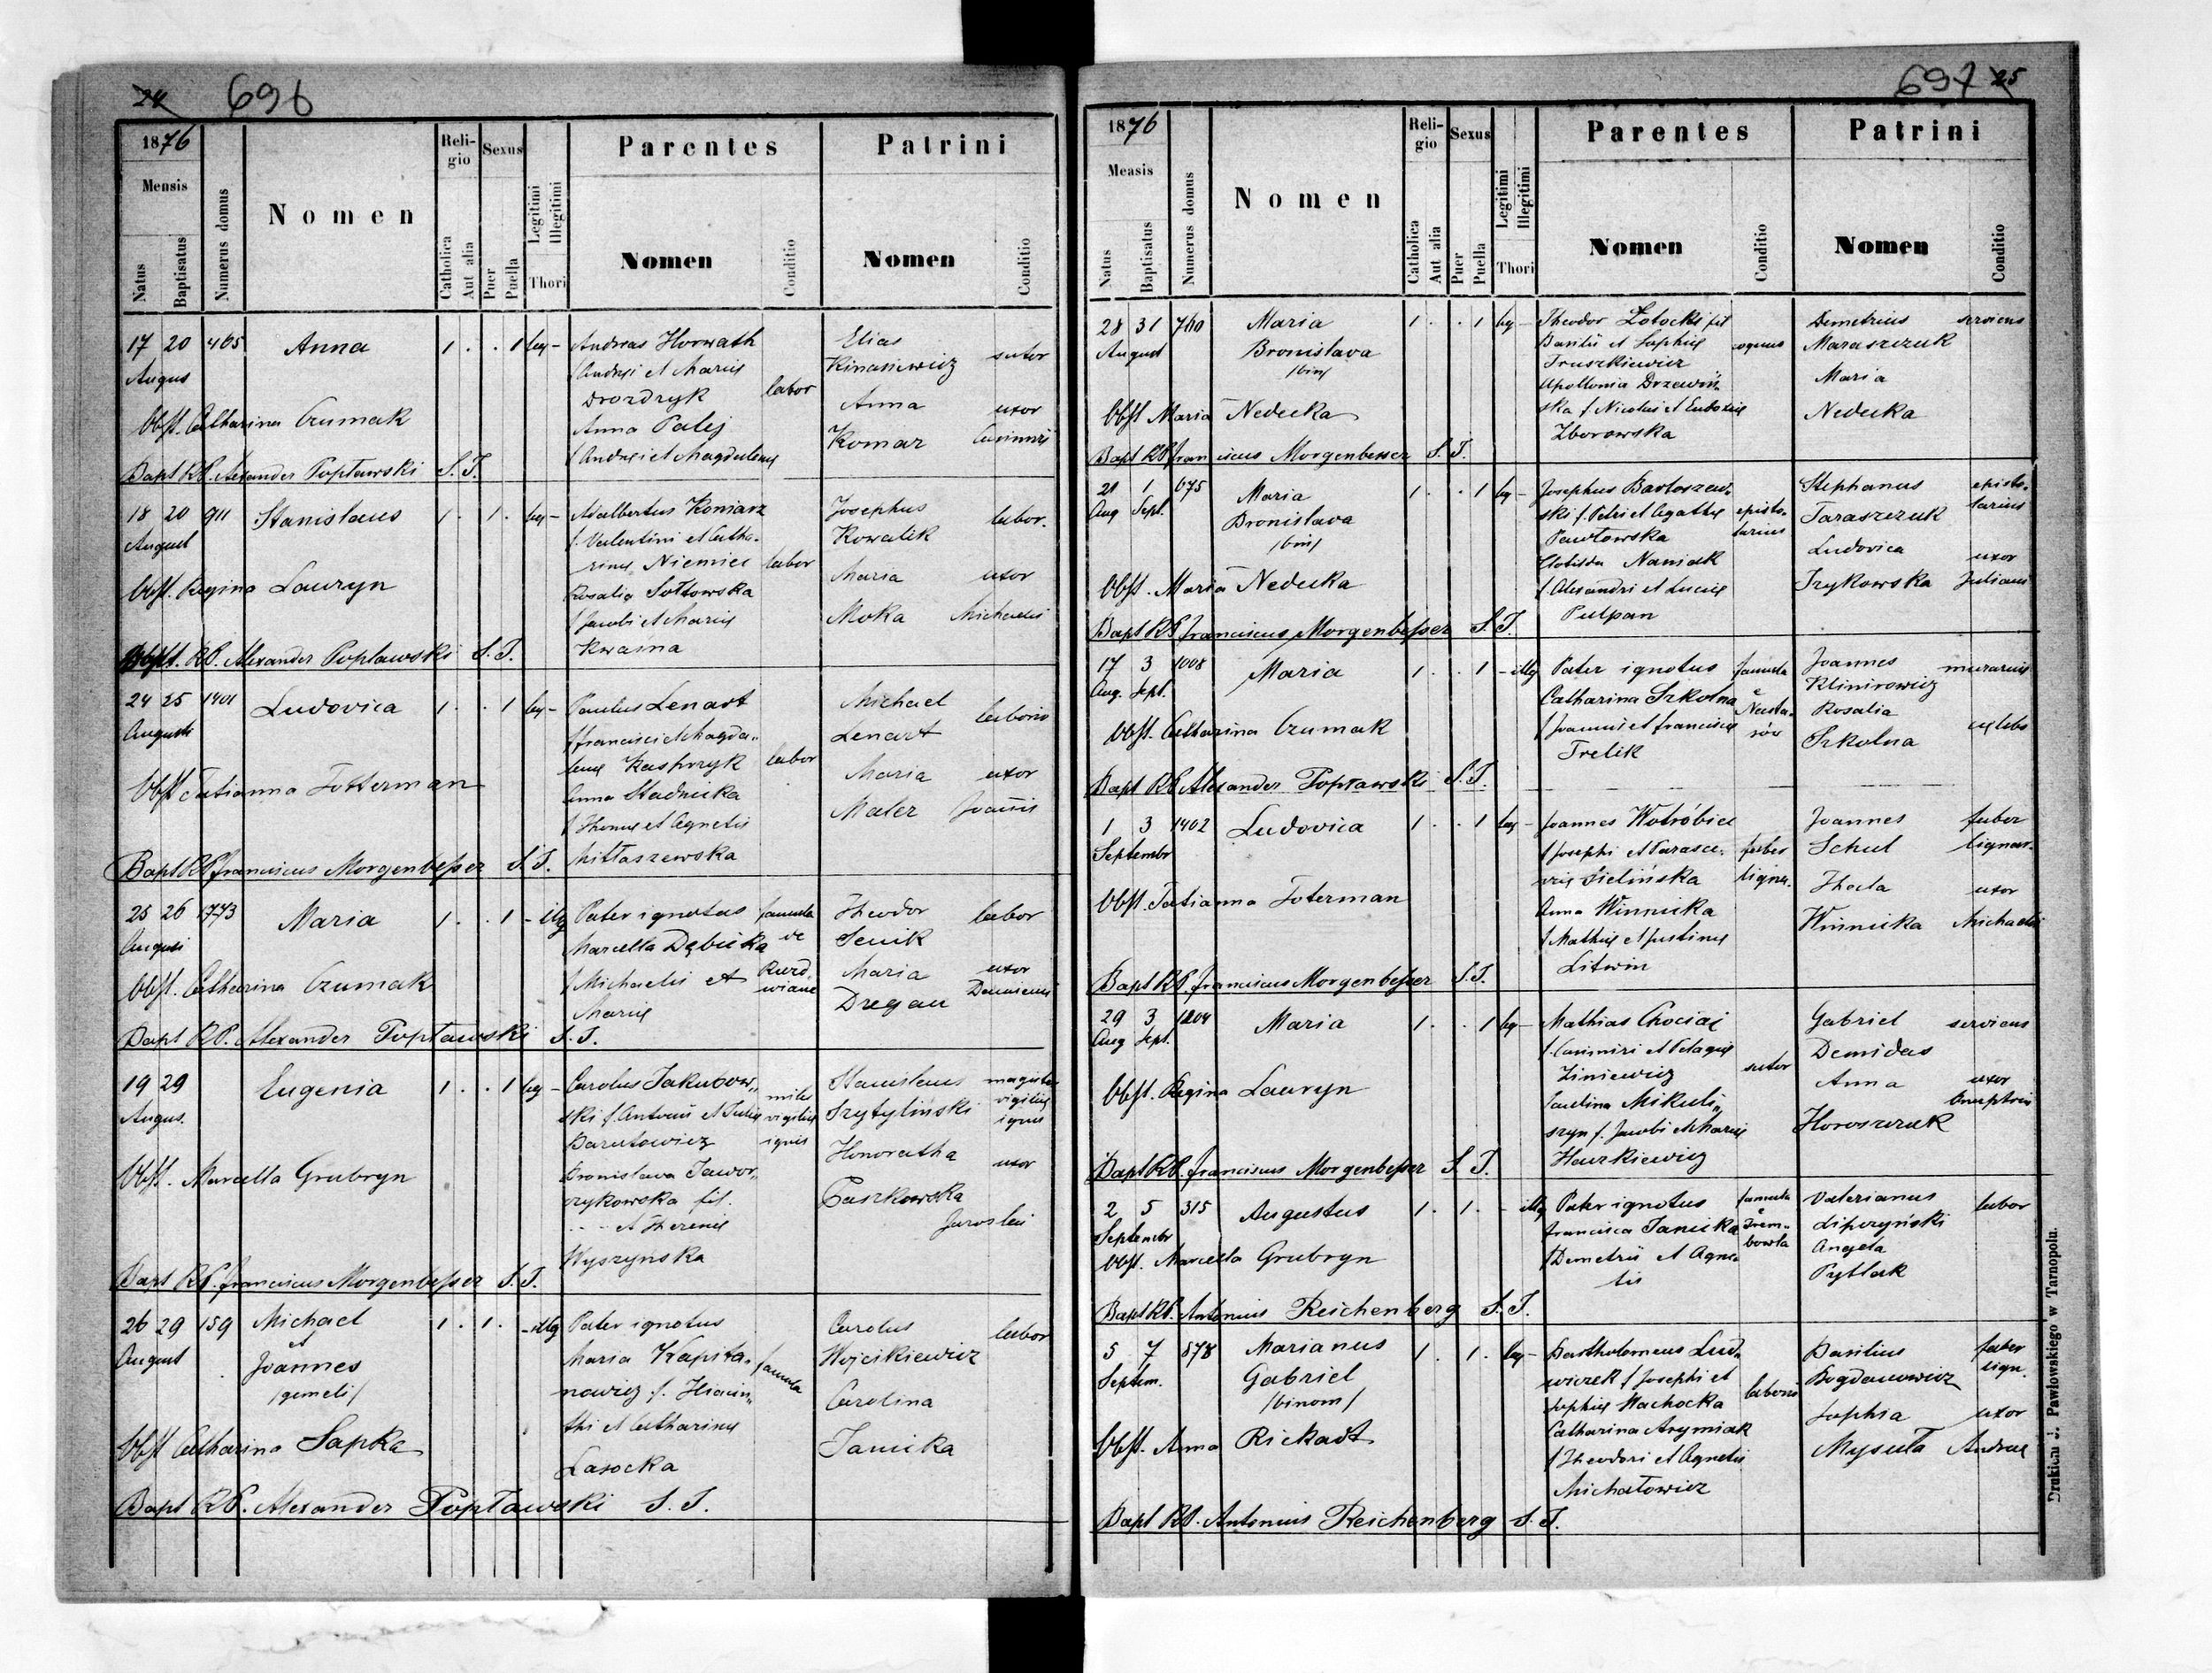 24 696
1876
Mensis
Natus
Baptisatus
Numerus domus
Nomen
Religio
Catholica
Aut alia
Sexus
Puer
Puella
Legitimi
Illegitimi
Thori
Parentes
Nomen
Conditio
Patrini
Nomen
Conditio
17 20 465 Anna 1 . . 1 leg - Andreas Horwath Elias
Augus /Andrei et Mariæ Kinasiewicz sutor
Drozdryk labor Anna uxor
Obst. Catharina Czumak Anna Palej Komar Casimiri
/Andrei et Magdalenæ
Bapt RP. Alexander Popławski S.J.
18 20 911 Stanislaus 1 . 1 . leg - Adalbertus Koniarz Josephus labor.
August f. Valentini et Catha- Kowalik
rinæ Niemiec labor Maria uxor
Obst. Regina Lauryn Rosalia Sołtowska Moka Michaelis
/Jacobi et Mariæ
Kwaśna
RP. Alexander Poplawski S.J.
24 25 1401 Ludovica 1 . . 1 leg - Paulus Lenart Michael laborio
August /Francisci et Magda- Lenart
lenæ Kasprzyk labor Maria uxor
Obst Tatianna Totterman Anna Stadnicka Maler Joannis
/Thomæ et Agnetis
Mittaszewska
Bapt RP Franciscus Morgenbesser S.J.
25 26 1773 Maria 1 . . 1 - illg Pater ignotus famula Theodor labor
Augusi Marcella Dębicka de Senik
Obst. Catharina Czumak /Michaelis et Kurd- Maria uxor
Mariæ wiane Dregan Damiani
Bapt RP. Alexander Popławski S.J.
19 29 Eugenia 1 . . 1 leg - Carolus Jakubow- miles Stanislaus magister
Augus. ski f. Antonii et Juliæ vigiliæ Szytyliński vigiliæ
Barutowicz ignis ignis
Obst. Marcella Grubryn Bronislava Jawor- Honoratha uxor
zykowska fil. Paszkowska
et Theresiæ Jaroslai
Wyszynska
Bapt RP. Franciscus Morgenbesser S.J.
26 29 159 Michael 1 . 1 . - illg Pater ignotus Carolus labor
August et Maria Kapita- famula Wojcikiewicz
Joannes nowicz f. Hiacin- Carolina
/gemeli/ thi et Catharinæ
Obst Catharina Sapka Lasocka Janicka
Bapt RP. Alexander Popławski S.J.
697 25
1876
Measis
Natus
Baptisatus
Numerus domus
Nomen
Religio
Catholica
Aut alia
Sexus
Puer
Puella
Legitimi
Illegitimi
Thori
Parentes
Nomen
Conditio
Patrini
Nomen
Conditio
28 31 760 Maria 1 . . 1 leg - Theodor Łotocki fil Demetrius serviens
August Bronislava Basilii et Sophiæ coquus Maraszczuk
/bin/ Truszkiewicz Maria
Apollonia Drzewiń-
Obst Maria Nedecka ska f. Nicolai et Eudoxiæ Nedecka
Zborowska
Bapt RP Franciscus Morgenbesser S.J.
21 1 675 Maria 1 . . 1 leg - Josephus Bartoszew- Stephanus episto-
Aug Sept. Bronislava ski f. Petri et Agathæ episto- Taraszczuk larius
/bin/ Pawłowska larius Ludovica uxor
Clotilda Naniak
Obst. Maria Nedecka /Alexandri et Luciæ Trykowska Juliani
Pulpan
Bapt RP Franciscus Morgenbesser S.J.
17 3 1008 Maria 1 . . 1 - illg Pater ignotus famula Joannes murarius
Aug. Sept. Catharina Szkolna e Klimirowicz
/Joannis et Franciscæ Nasta- Rosalia
Obst. Catharina Czumak Trelik sów Szkolna cælebs
Bapt RP Alexander Popławski S.J.
1 3 1402 Ludovica 1 . . 1 leg - Joannes Wołróbiec Joannes faber
Septembr /Josephi et Parasce- faber Schul lignar.
viæ Sielińska ligna. Thecla uxor
Obst. Tatianna Toterman Anna Winnicka Winnicka Michaelis
/Mathiæ et Justinæ
Litwin
Bapt RP. Franciscus Morgenbesser S.J.
29 3 1204 Maria 1 . . 1 leg - Mathias Chociaj Gabriel serviens
Aug Sept. f. Casimiri et Pelagiæ Demidas
Ziniewicz sutor Anna uxor
Obst. Regina Lauryn Paulina Mikuli- Onuphrii
szyn f. Jacobi et Mariæ Horoszczuk
Hawrkiewicz
Bapt RP. Franciscus Morgenbesser S.J.
2 5 315 Augustus 1 . 1 . - illg Pater ignotus famula Valerianus labor
Septembr Francisca Janicka e Lipczyński
/Demetrii et Agne- Trem- Angela
Obst. Marcella Grubryn tis bowla Pytlak
Bapt RP. Antonius Reichenberg S.J.
5 7 878 Marianus 1 . 1 . leg - Bartholomeus Lud- Basilius faber
Septem. Gabriel wiczek f Josephi et Bogdanowicz lign.
/binom/ Sophiæ Machocka laborio Sophia uxor
Obst. Anna Rickadt Catharina Arymiak Mysuła Andreæ
/Theodori et Agnetis
Michałowicz
Bapt RP. Antonius Reichenberg S.J.
Drukiem J. Pawłowskiego w Tarnopolu.